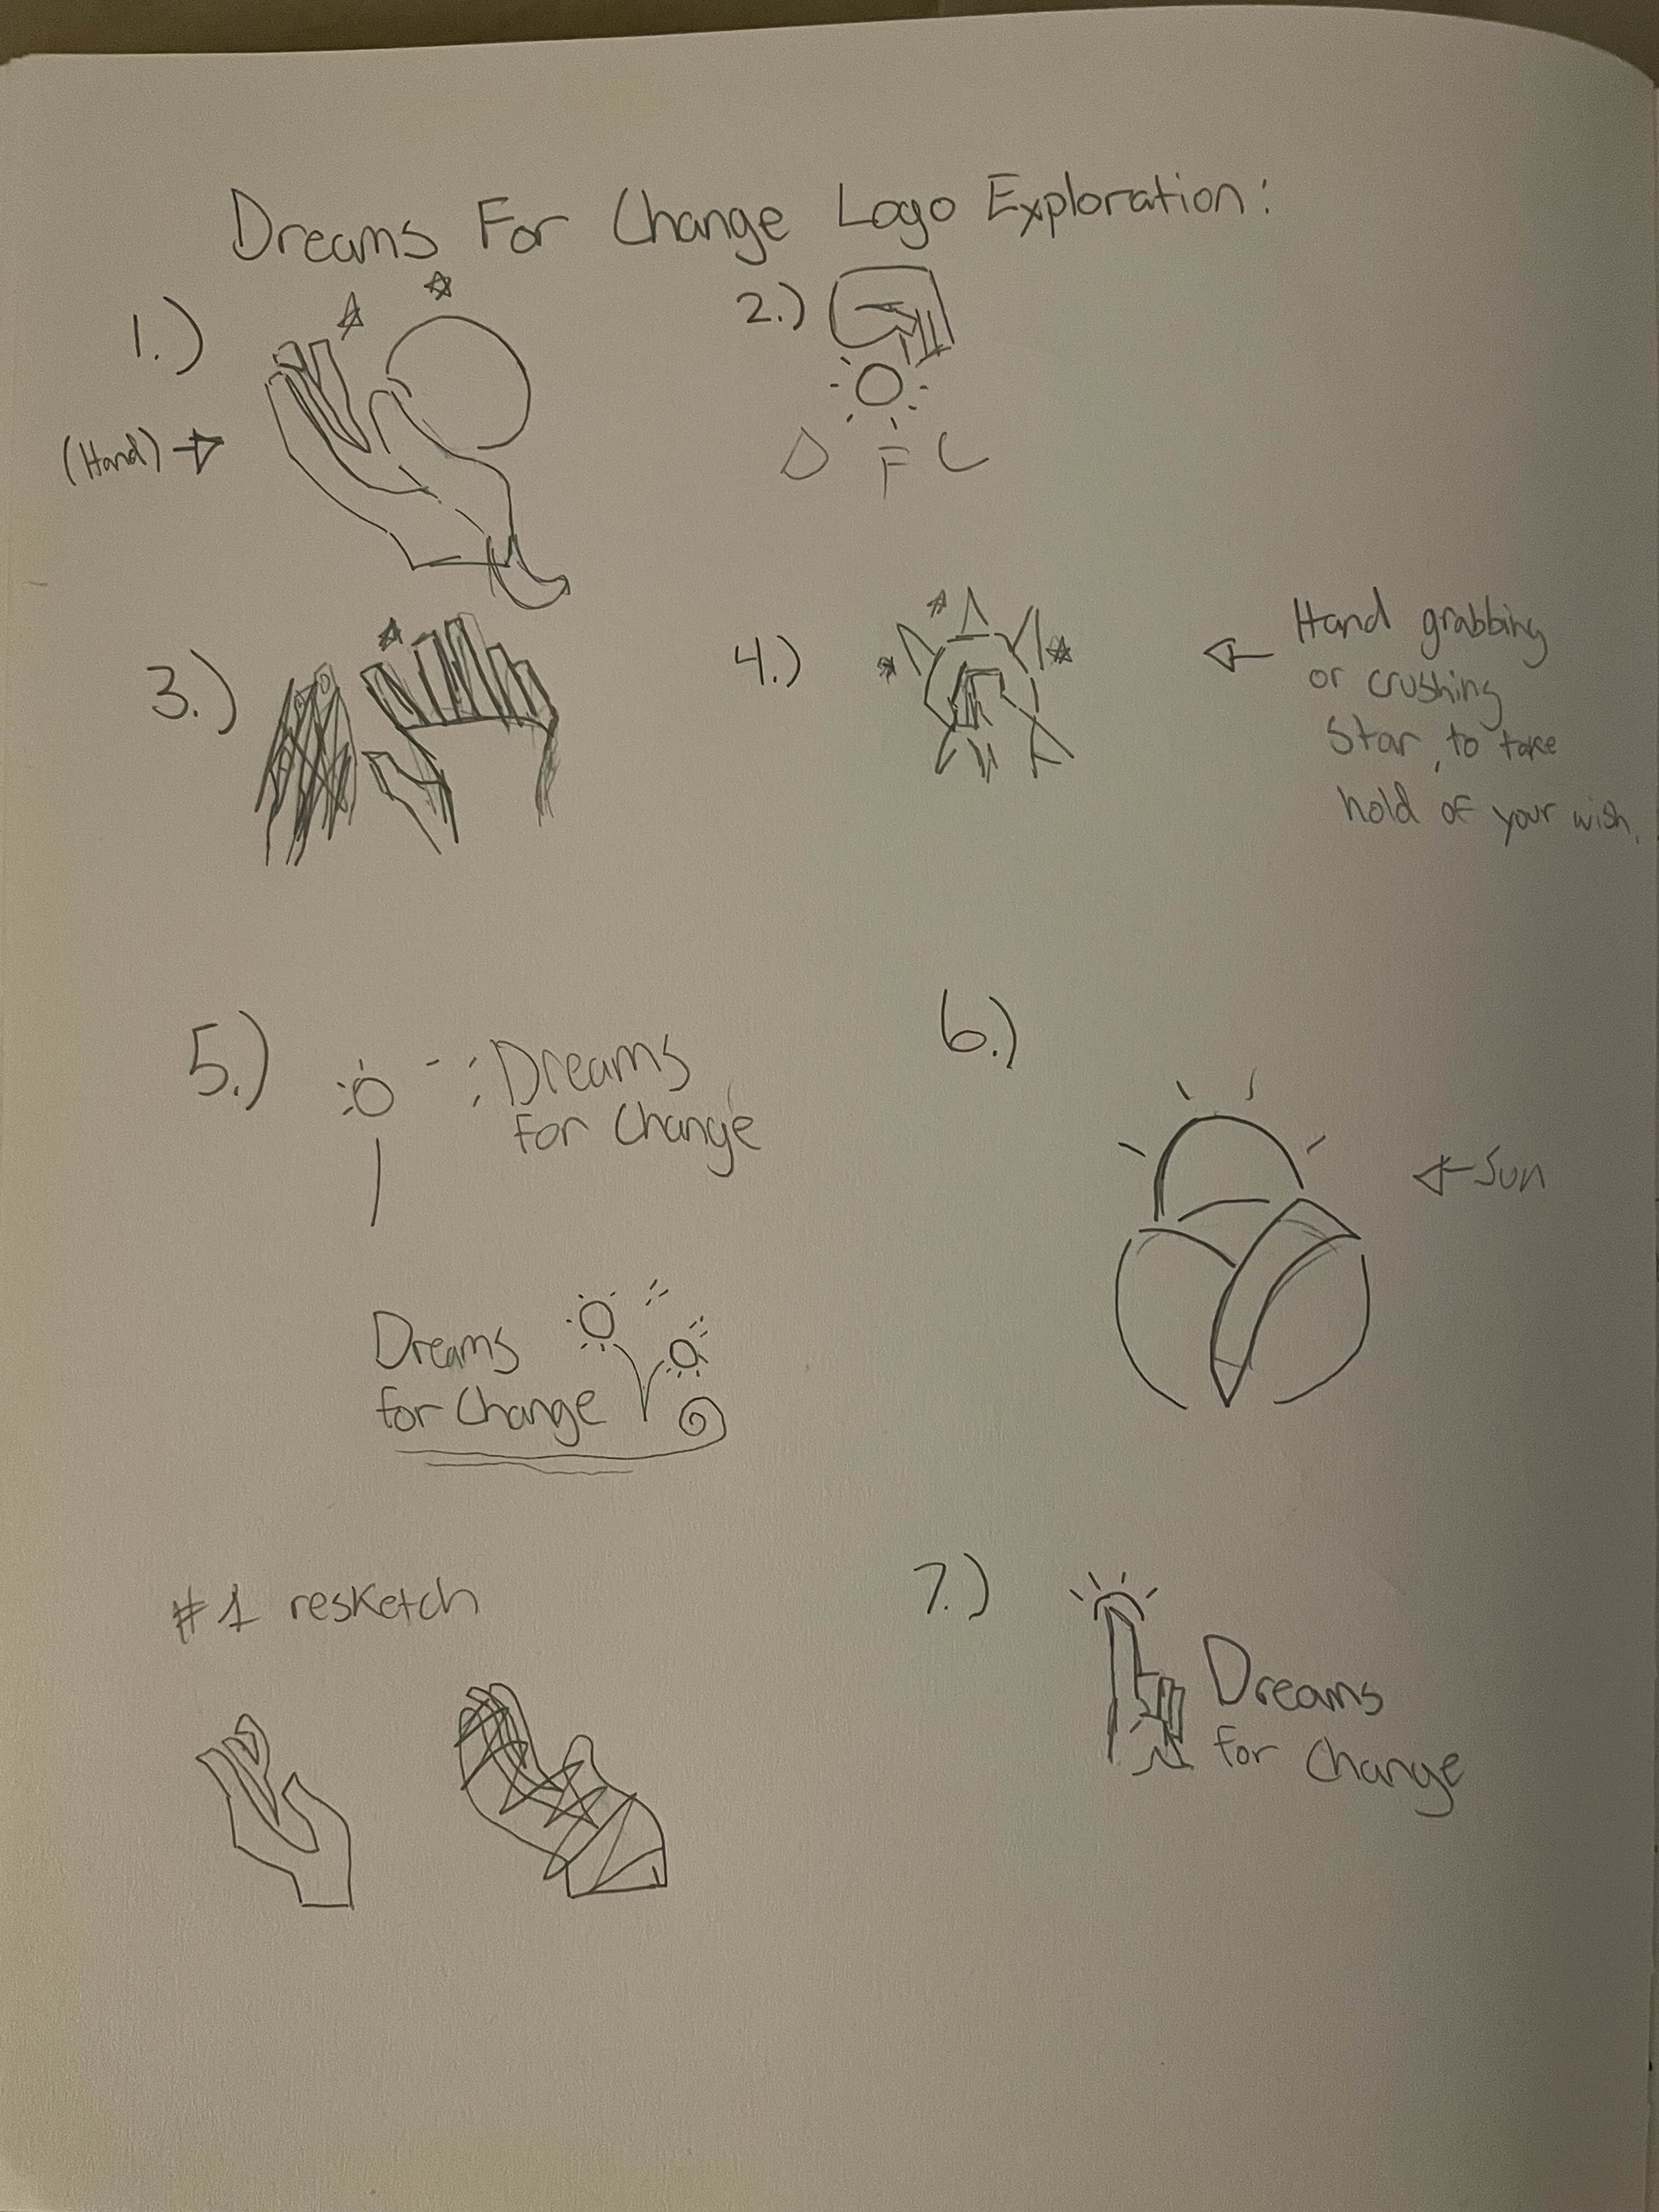 Dreams For Change Logo Exploration:
1.)
(Hand)
2.)
D F C
3.)
4.)
Hand grabbing
or crushing
Star, to take
hold of your wish.
5.)
Dreams
for Change
6.)
Sun
Dreams
for Change
#1 resketch
7.)
Dreams
for Change